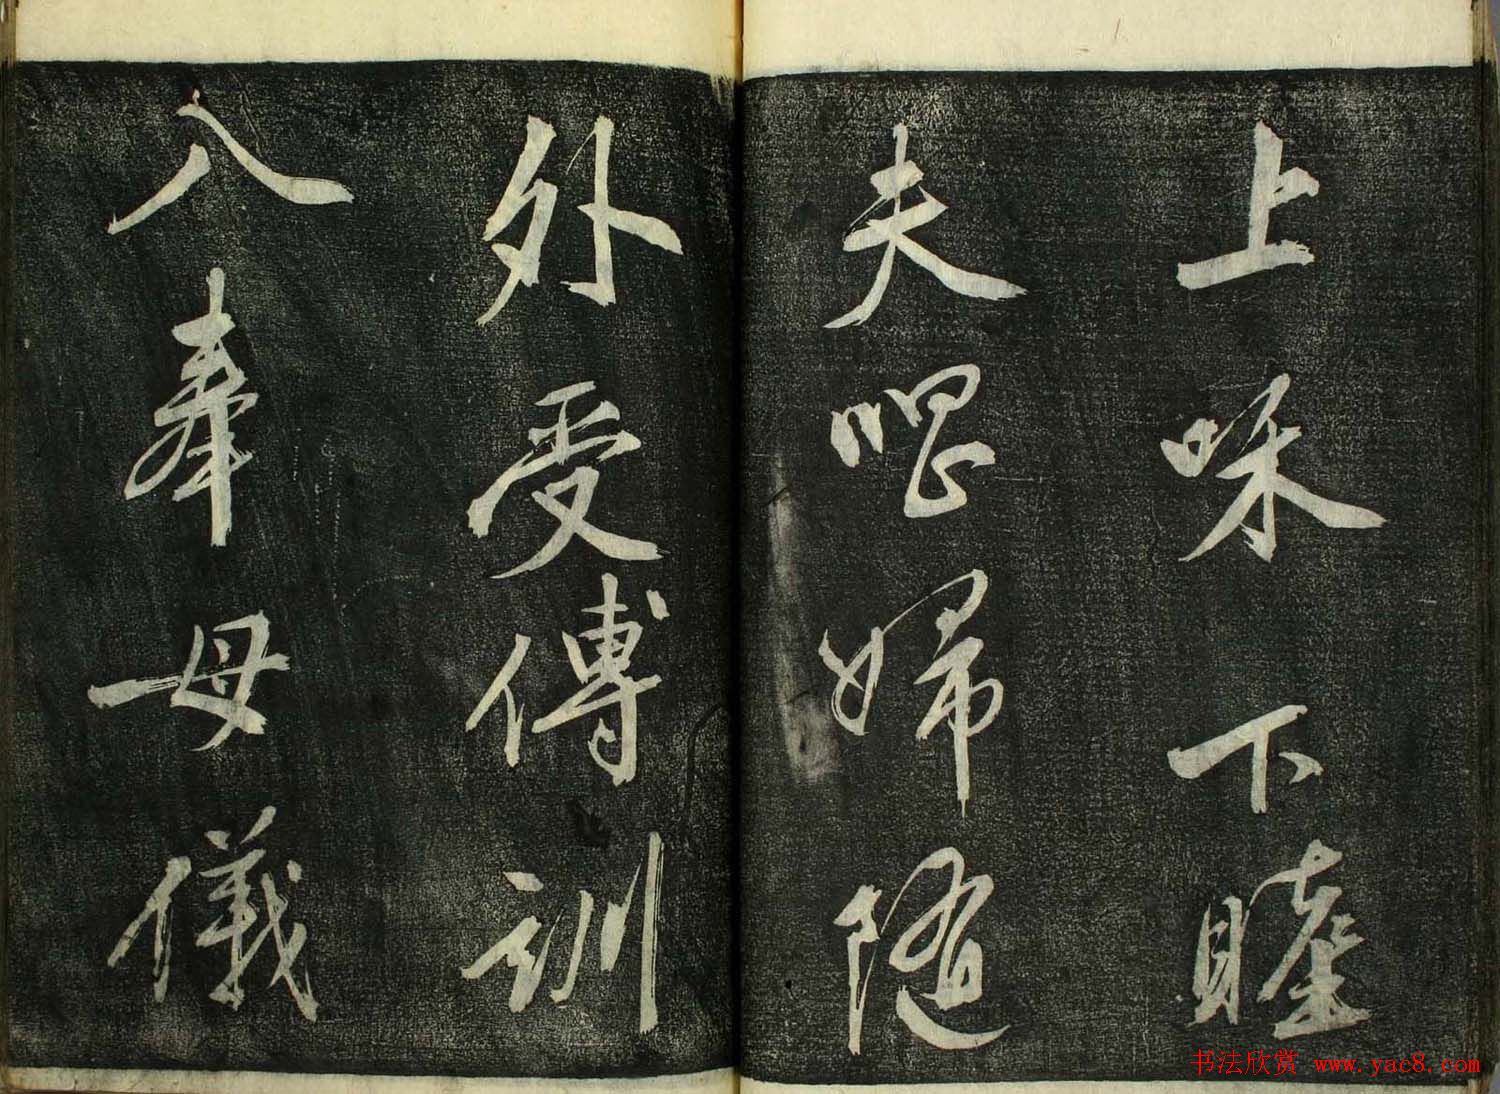 上咊下睦
夫唱婦隨
外受傅訓
入奉母儀
书法欣赏 www.yac8.com